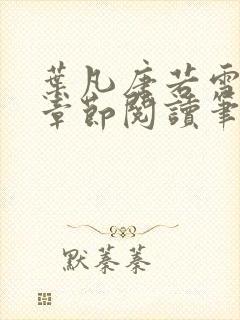 葉凡唐若雪
章節閱讀筆
默蓁蓁